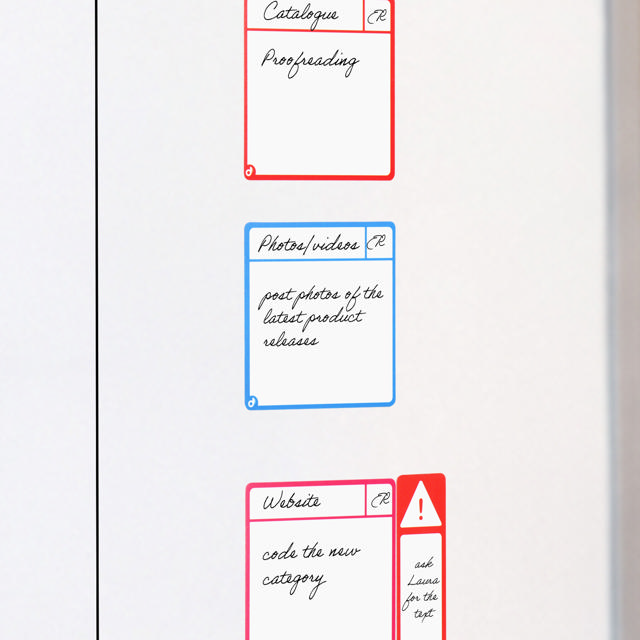 Catalogue CR
Proofreading
Photos/videos CR
post photos of the
latest product
releases
Website CR
code the new
category
!
ask
Laura
for the
text